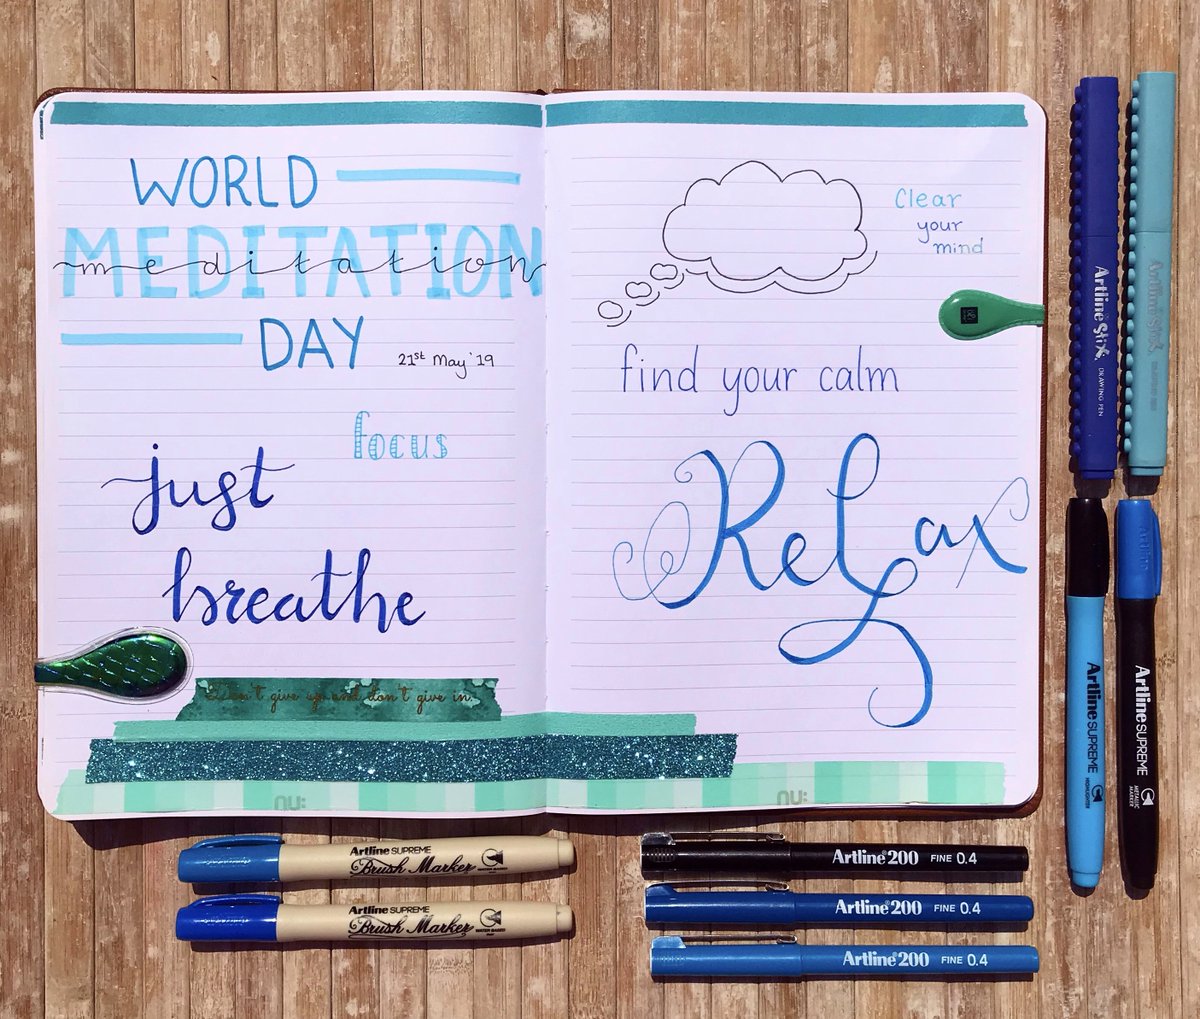 WORLD
MEDITATION
meditation
DAY
21st May '19
focus
just
breathe
Don't give up and don't give in.
nu:
Clear
your
mind
find your calm
Relax
nu:
Artline Stix
DRAWING PEN
Artline Stix
DRAWING PEN
Artline SUPREME
HIGHLIGHTER
Artline
Artline SUPREME
METALLIC MARKER
Artline SUPREME
Brush Marker
Artline SUPREME
Brush Marker
WATER BASED
Artline 200 FINE 0.4
Artline 200 FINE 0.4
Artline 200 FINE 0.4